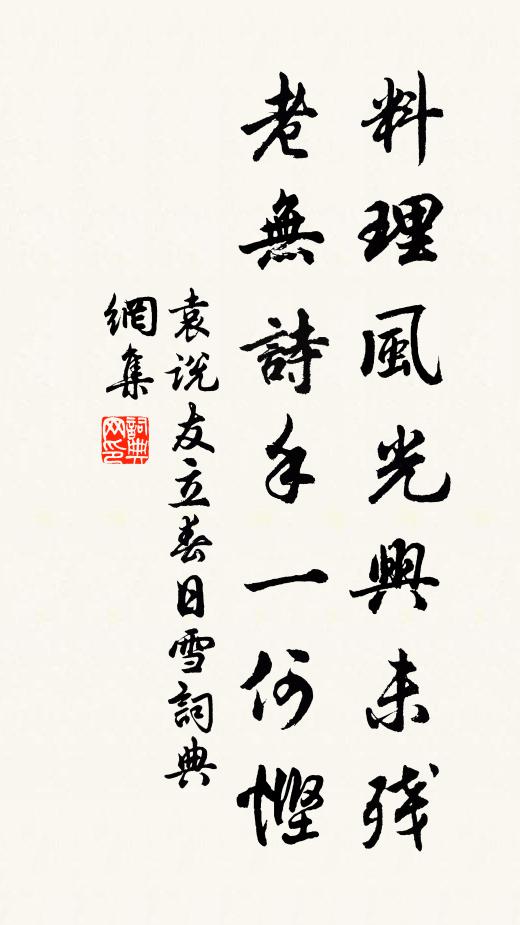 料理風光興未殘
老無詩手一何慳
袁说友立春日雪詞典
網集
詞典
网印